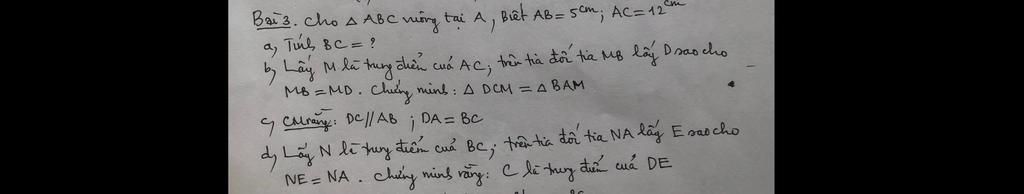 Bài 3. Cho △ ABC vuông tại A, Biết AB = 5cm; AC = 12cm
a, Tính BC = ?
b, Lấy M là trung điểm cuả AC; trên tia đối tia MB lấy D sao cho
MB = MD. Chứng minh: △ DCM = △ BAM
c, CM rằng: DC // AB ; DA = BC
d, Lấy N là trung điểm cuả BC; trên tia đối tia NA lấy E sao cho
NE = NA. Chứng minh rằng: C là trung điểm cuả DE